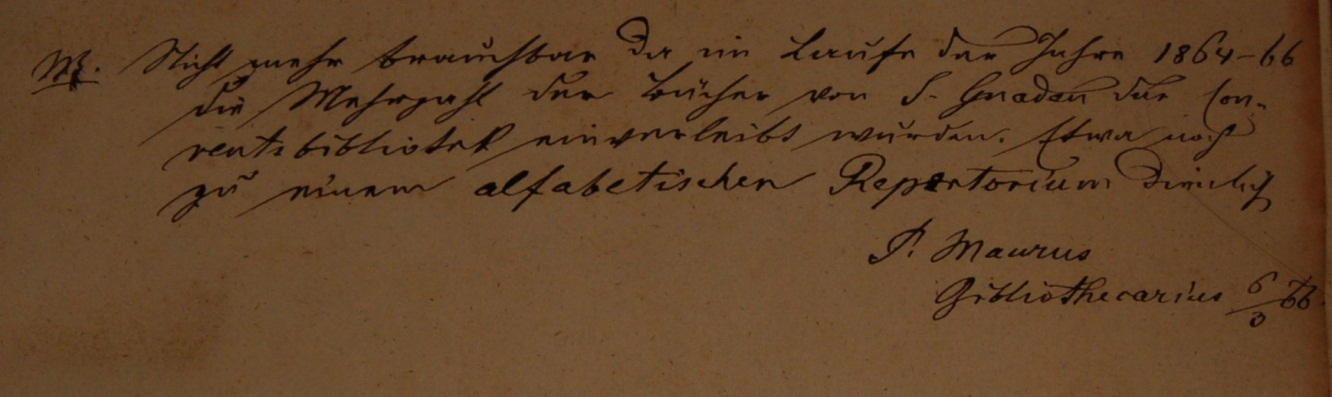 NB. Nicht mehr brauchbar da im Laufe der Jahre 1864-66
die Mehrzahl der Bücher von S. Gnaden der Con-
ventsbibliothek einverleibt wurden. Etwa noch
zu einem alfabetischen Repertorium dienlich
P. Maurus
Bibliothecarius 66.